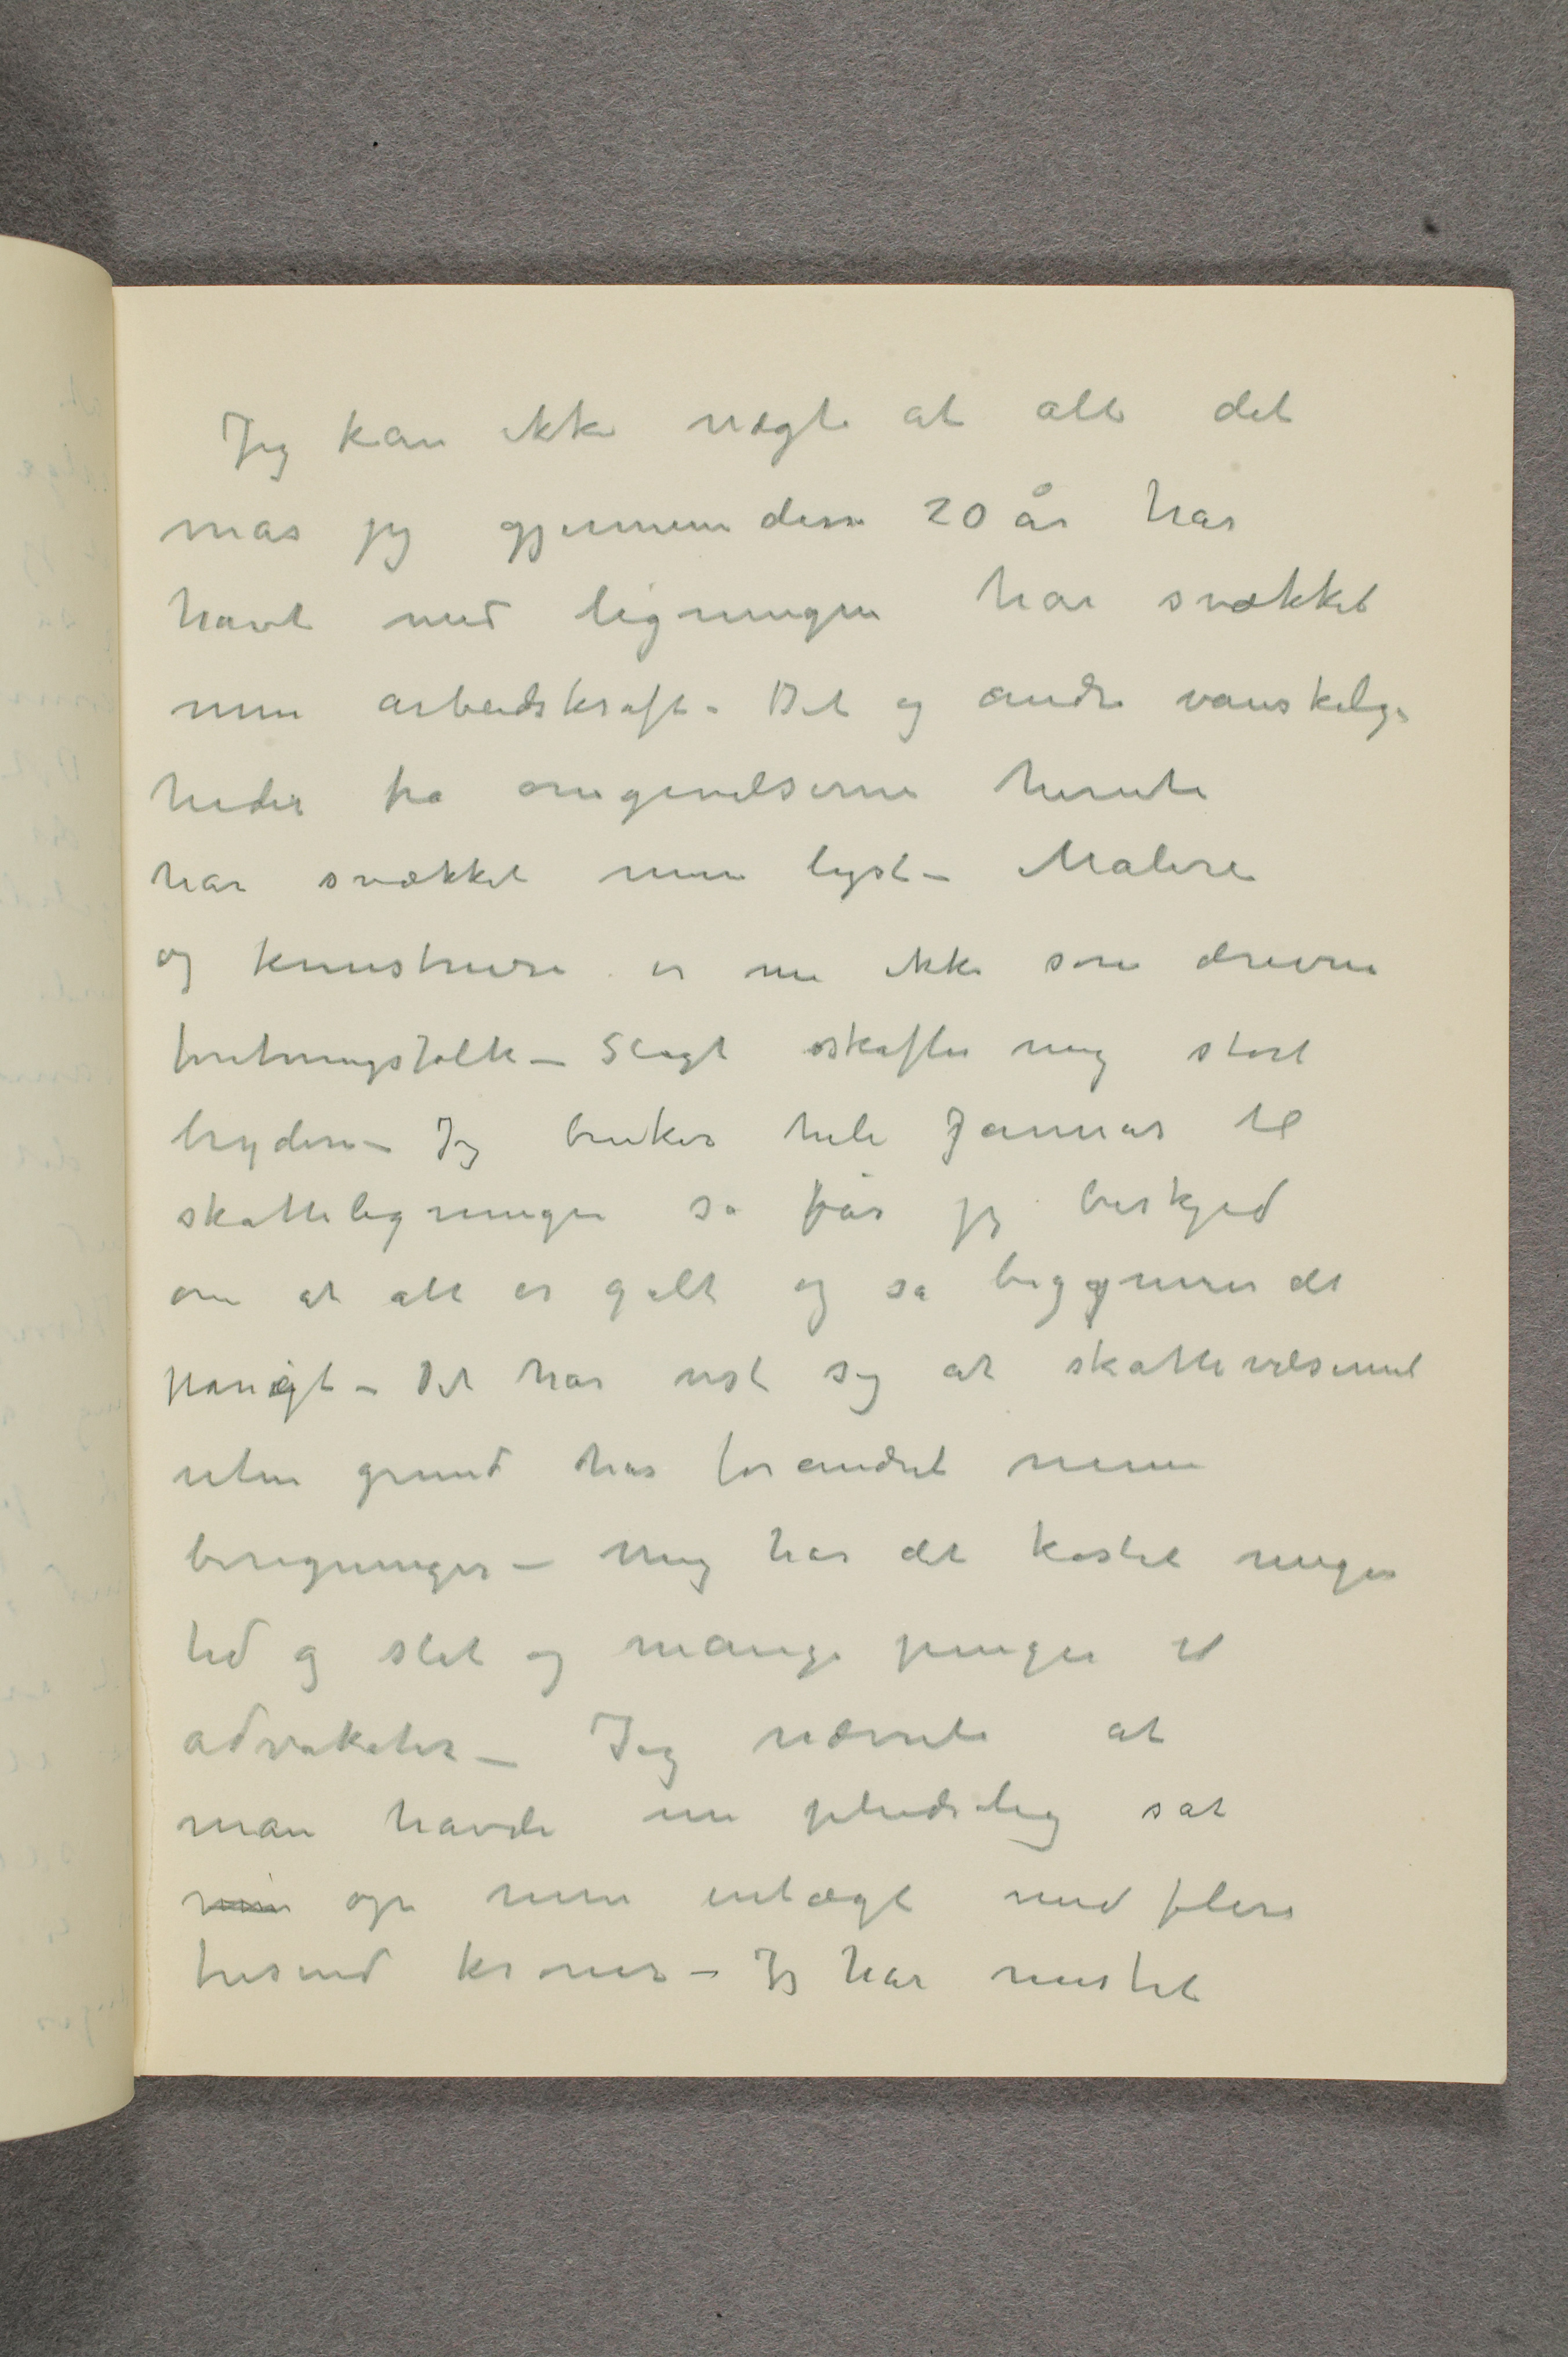 Jeg kan ikke nægte at alt det
mas jeg gjennem disse 20 år har
havt med ligningen har svækket
min arbeidskraft – Det og andre vanskelig
heder fra omgivelserne herute
har svækket min lyst – Malere
og kunstnere er nu ikke som drevne
forretningsfolk – Sligt skaffer mig stort
bryderi – Jeg bruker hele Januar til
skatteligningen så får jeg beskjed
om at alt er galt og så begynner det
påny – Det har vist sig at skattevæsenet
uten grund har forandret mine
beregninger – Mig har det kostet megen
tid og slit og mange penger til
advokater – Jeg nævnte at
man havde nu pludselig sat
min op min indtægt med flere
tusind kroner – Jeg har mistet